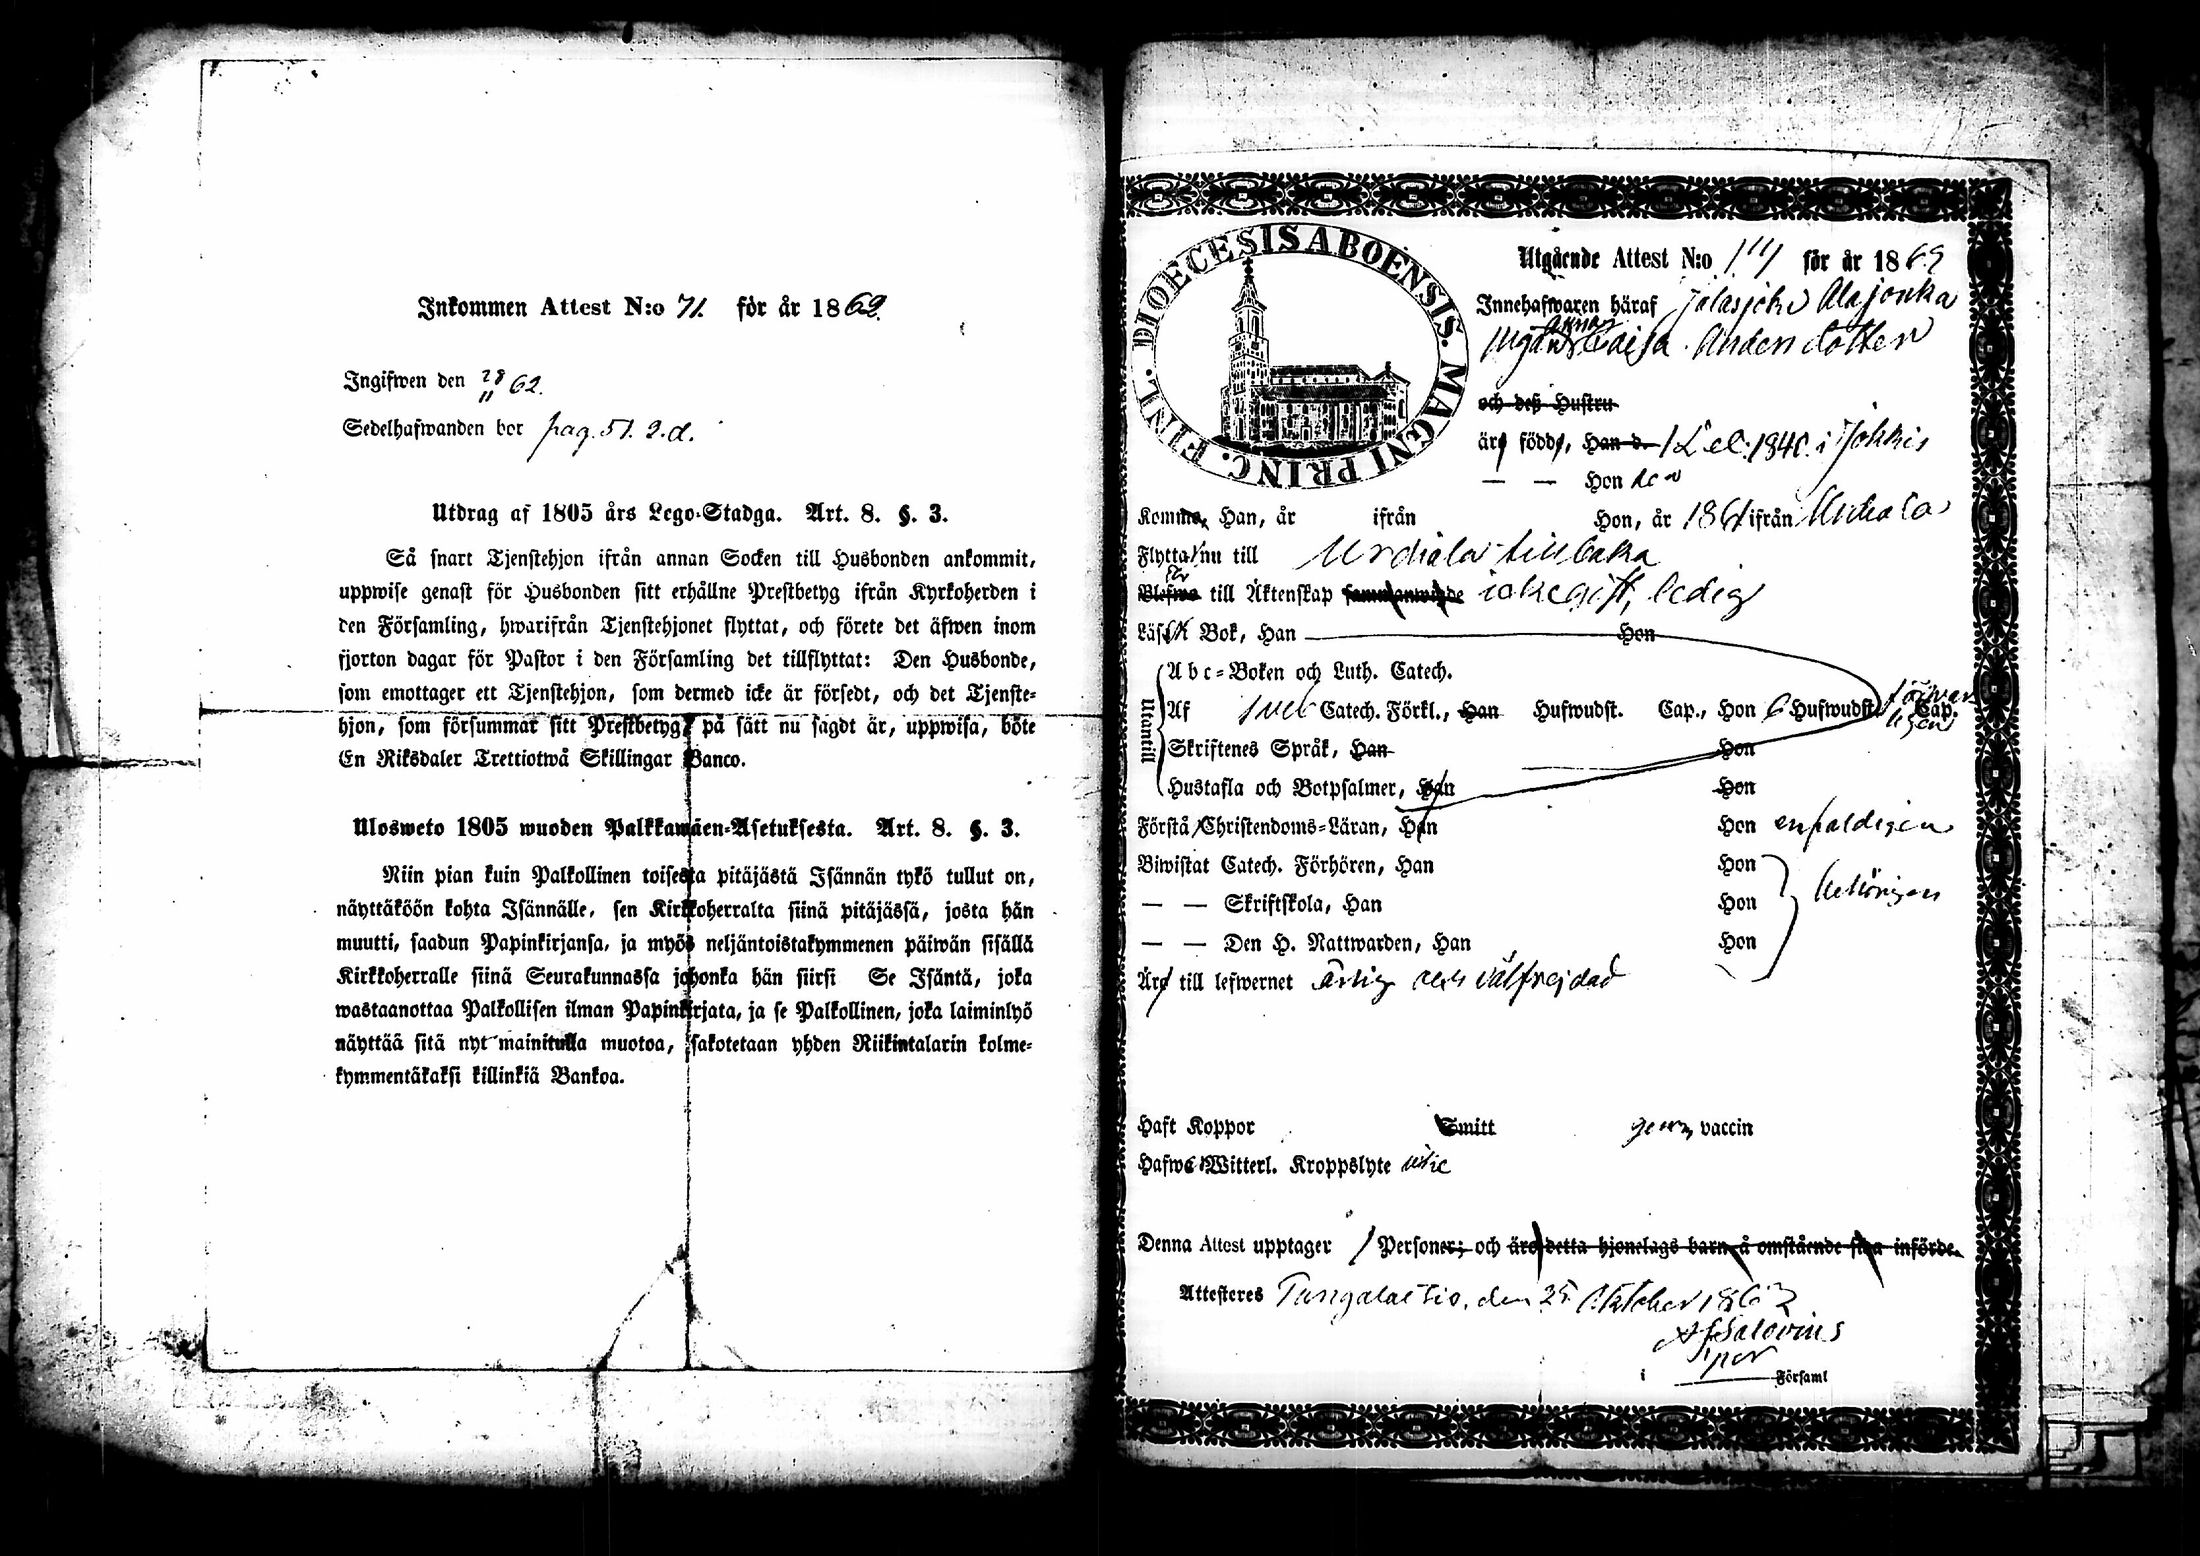 Inkommen Attest N:o 71. för år 1862.
Ingifwen den 28/11 62.
Sedelhafwanden bor pag. 51. 2.d.
Utdrag af 1805 års Lego-Stadga. Art. 8. §. 3.
Så snart Tjenstehjon ifrån annan Socken till Husbonden ankommit,
uppwise genast för Husbonden sitt erhållne Prestbetyg ifrån Kyrkoherden i
den Församling, hwarifrån Tjenstehjonet flyttat, och förete det äfwen inom
fjorton dagar för Pastor i den Församling det tillflyttat: Den Husbonde,
som emottager ett Tjenstehjon, som dermed icke är försedt, och det Tjenste-
hjon, som försummar sitt Prestbetyg, på sätt nu sagdt är, uppwisa, böte
En Riksdaler Trettiotwå Skillingar Banco.
Ulosweto 1805 wuoden Palkkawäen-Asetuksesta. Art. 8. §. 3.
Niin pian kuin Palkollinen toisesta pitäjästä Isännän tykö tullut on,
näyttäköön kohta Isännälle, sen Kirkkoherralta siinä pitäjässä, josta hän
muutti, saadun Papinkirjansa, ja myös neljäntoistakymmenen päiwän sisällä
Kirkkoherralle siinä Seurakunnassa johonka hän siirsi Se Isäntä, joka
wastaanottaa Palkollisen ilman Papinkirjata, ja se Palkollinen, joka laiminlyö
näyttää sitä nyt mainitulla muotoa, sakotetaan yhden Riikintalarin kolme-
kymmentäkaksi killinkiä Bankoa.
DIOECESIS ABOENSIS. MAGNI PRINC. FINL.
Utgående Attest N:o för år 186
Innehafwaren häraf Alajonka
Caisa Andersdotter
och deß Hustru
är född, Han d. 1840. i Jokkis
— — Hon den
Komme, Han, år ifrån Hon, år 1861 ifrån Urdiala
Flyttar nu till Urdiala tillbaka
Blefwo till Äktenskap sammanwigde icke gift, ledig
Läser i Bok, Han Hon
Utantill
Abc-Boken och Luth. Catech.
Af Catech. Förkl., Han Hufwudst. Cap., Hon 6 Hufwudst. Cap.
Skriftenes Språk, Han Hon
Hustafla och Botpsalmer, Han Hon
Förstå Christendoms-Läran, Han Hon enfaldigen
Biwistat Catech. Förhören, Han Hon
— — Skriftskola, Han Hon behörigen
— — Den H. Nattwarden, Han Hon
Äro till lefwernet ärlig och välfrejdad
Haft Koppor Smitt genom vaccin
Hafwer Witterl. Kroppslyte icke
Denna Attest upptager 1 Personer; och äro detta hjonelags barn å omstående sida införde.
Attesteres Tungalaitio, den 25 Oktober 1862
Salovius
i Församl